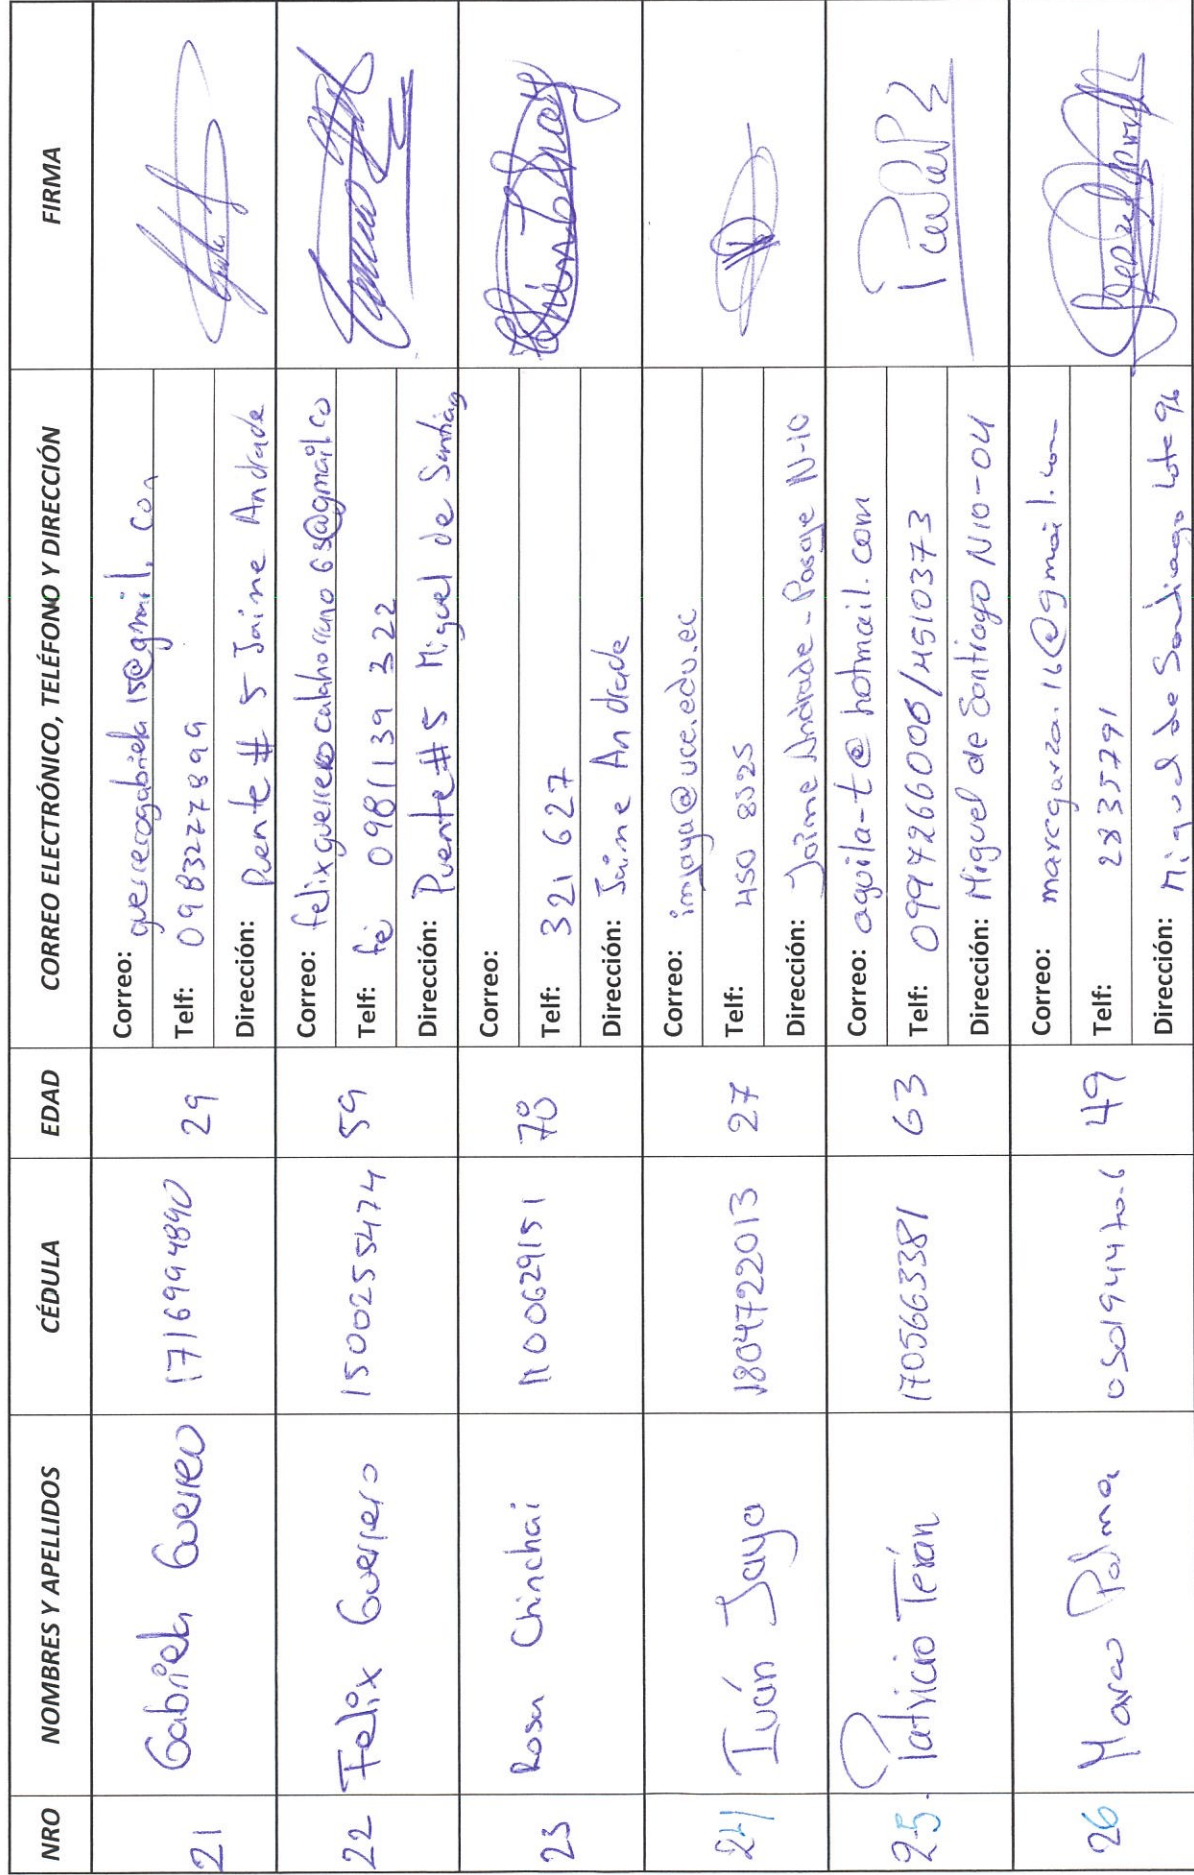 NRO NOMBRES Y APELLIDOS CÉDULA EDAD CORREO ELECTRÓNICO, TELÉFONO Y DIRECCIÓN FIRMA
21 Gabriela Guerrero 1716994890 29
Correo: guerrerogabriela15@gmail.con
Telf: 0983227899
Dirección: Puente # 5 Jaime Andrade
22 Felix Guerrero 1500255474 59
Correo: felixguerrerocalahorrano63@gmail.co
Telf: fe 0981139322
Dirección: Puente #5 Miguel de Santiag
23 Rosa Chinchai 1100629151 70
Correo:
Telf: 321 627
Dirección: Jaime Andrade
24 Iván Jayo 1804722013 27
Correo: imjayo@uce.edu.ec
Telf: 450 8525
Dirección: Jaime Andrade - Pasaje N-10
25. Patricio Terán 1705663381 63
Correo: aguila-t@hotmail.com
Telf: 0994266000/4510373
Dirección: Miguel de Santiago N10-04
26 Marco Palma 49
Correo: marcgarza.16@gmail.com
Telf: 2835791
Dirección: Miguel de Santiago Lote 96